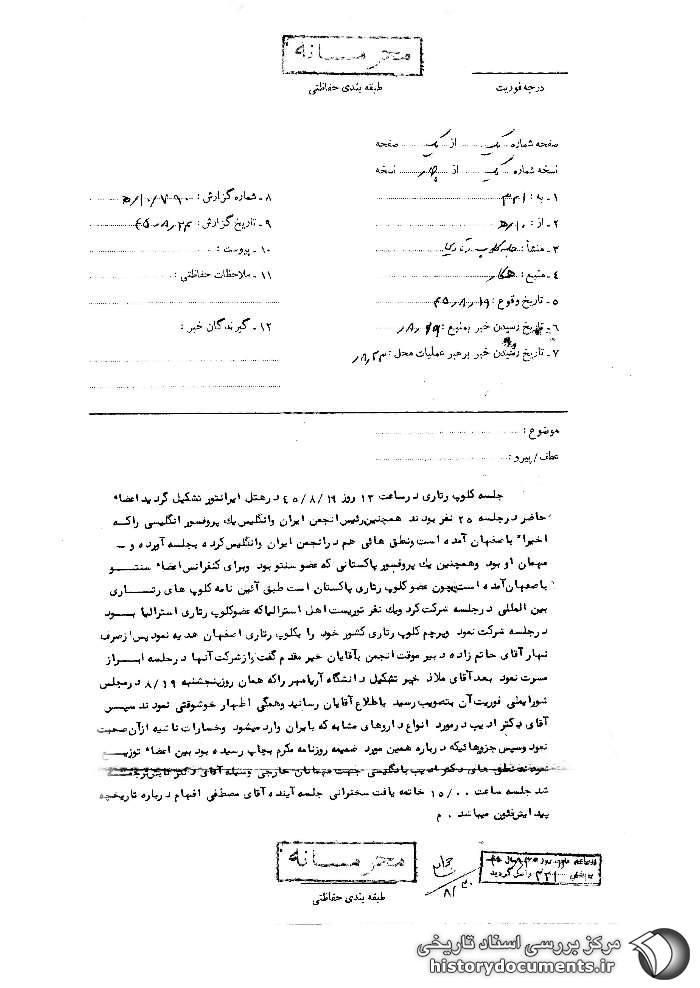 محرمـــانه
طبقه بندی حفاظتی
درجه فوریت
صفحه شماره یک از یک صفحه
نسخه شماره یک از نسخه
۱ـ به : ۳۴۱
۲ـ از : ۱۰/ه
۳ـ منشأ : جلسه کلوپ رتاری
۴ـ منبع : همکار
۵ ـ تاریخ وقوع : ۴۵/۸/۱۹
۶ـ تاریخ رسیدن خبر بمنبع : ۸/۱۹
۷ ـ تاریخ رسیدن خبر برهبر عملیات محل : ۸/۲۳
۸ ـ شماره گزارش :
۹ ـ تاریخ گزارش : ۴۵/۸/۲۴
۱۰ ـ پیوست :
۱۱ ـ ملاحظات حفاظتی :
۱۲ ـ گیرندگان خبر :
موضوع :
عطف/پیرو :
جلسه کلوپ رتاری درساعت ۱۳ روز ۴۵/۸/۱۹ درهتل ایرانتور تشکیل گردید اعضاء
حاضر درجلسه ۲۵ نفر بودند همچنین رئیس انجمن ایران وانگلیس یك پروفسور انگلیسی راکه
اخیراً باصفهان آمده است ونطق هائی هم درانجمن ایران وانگلیس کرده بجلسه آورده و ـ
مهمان او بود وهمچنین یك پروفسور پاکستانی که عضو سنتو بود وبرای کنفرانس اعضاء سنتــو
باصفهان آمده است چون عضو کلوپ رتاری پاکستان است طبق آئین نامه کلوپ های رتــاری
بین المللی درجلسه شرکت کرد ویك نفر توریست اهل استرالیاکه عضوکلوپ رتاری استرالیا بــود
درجلسه شرکت نمود وپرچم کلوپ رتاری کشور خود را بکلوپ رتاری اصفهان هدیه نمود پس ازصرف
نهار آقای حاتم زاده دبیر موقت انجمن باقایان خیر مقدم گفت وازشرکت آنها درجلسه ابــراز
مسرت نمود بعد آقای ملاذ خبر تشکیل دانشگاه آریامهر راکه همان روز پنجشنبه ۸/۱۹ درمجلس
شورایملی فوریت آن بتصویب رسید باطلاع آقایان رسانید وهمگی اظهار خوشوقتی نمودند سپس
آقای دکتر ادیب درمورد انواع داروهای مشابه که بایران وارد میشود وخسارات ناشیه ازآن صحبت
نمود وسپس جزوهائیکه درباره همین مورد ضمیمه روزنامه مکرم بچاپ رسیده بود بین اعضاء توزیــع
نمودند نطق های دکتر ادیب بانگلیسی جهت مهمانان خارجی وسیله آقای دکتر
شد جلسه ساعت ۱۵/۰۰ خاتمه یافت سخنرانی جلسه آینده آقای مصطفی افهام درباره تاریخچه
پیدایش نئون میباشد . م
محرمـــانه
طبقه بندی حفاظتی
۸/۳۰
واصل گردید
مرکز بررسی اسناد تاریخی
historydocuments.ir